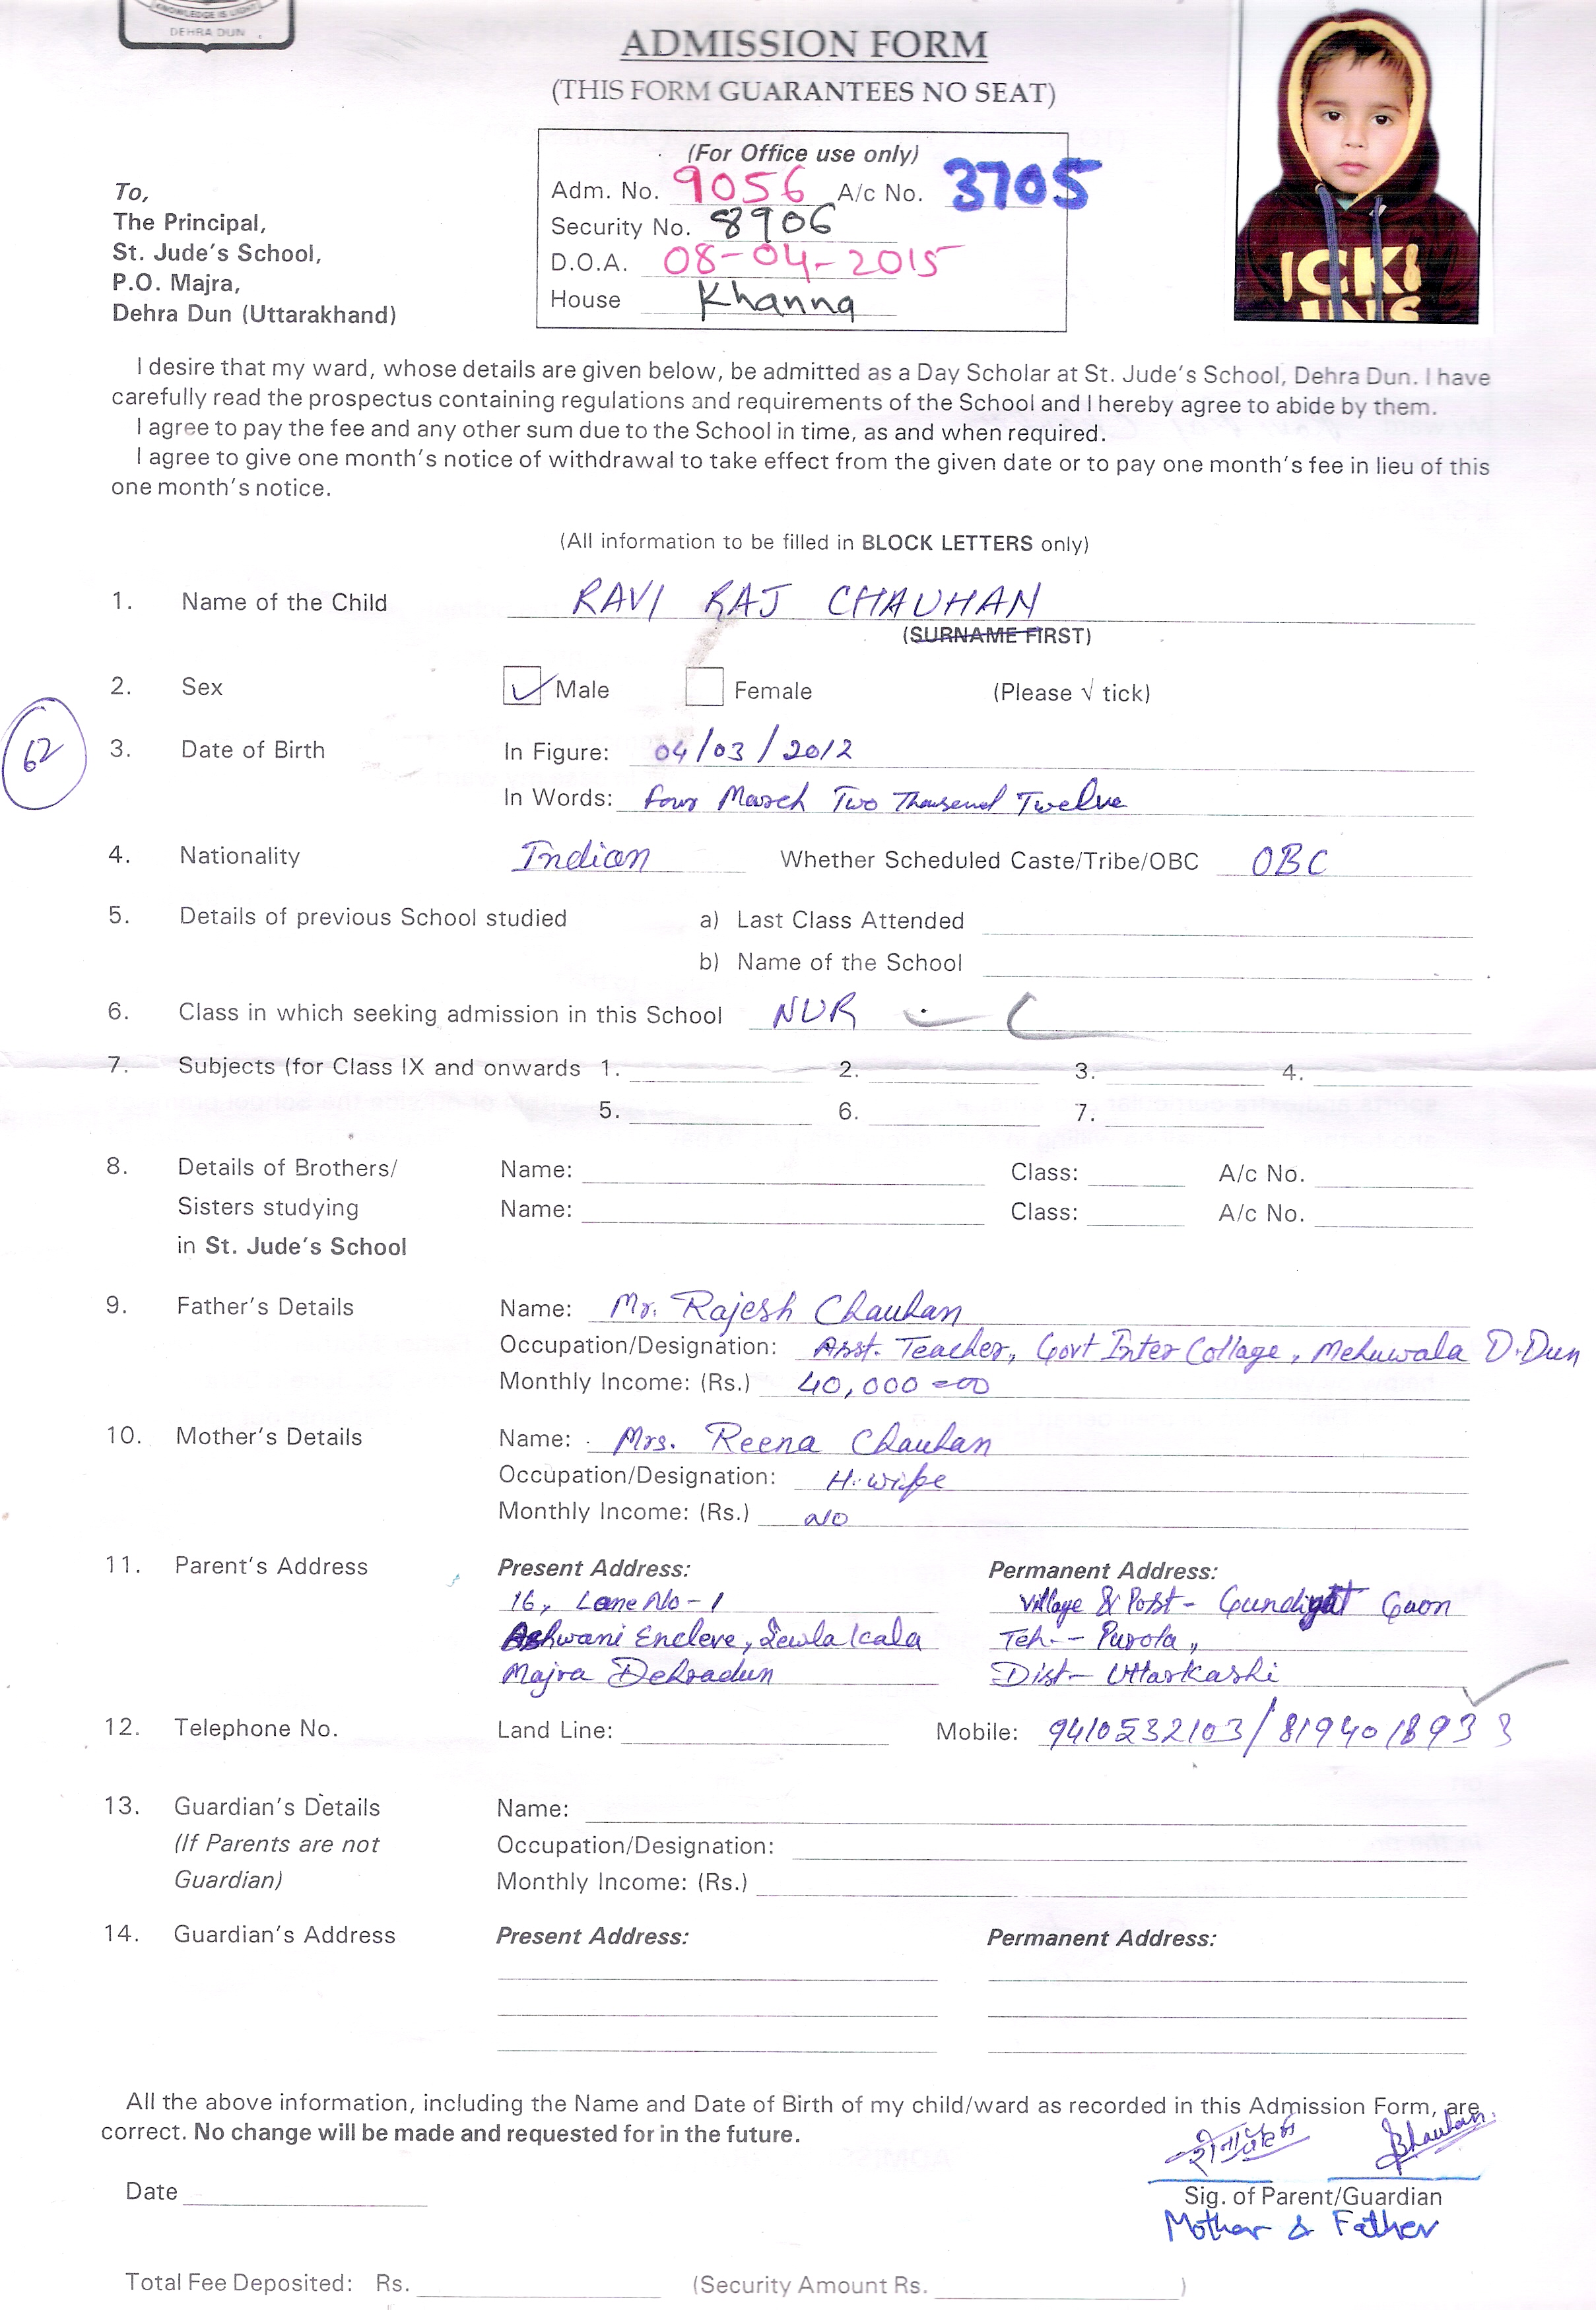 KNOWLEDGE IS LIGHT
DEHRA DUN
ADMISSION FORM
(THIS FORM GUARANTEES NO SEAT)
(For Office use only)
Adm. No. 9056 A/c No. 3705
Security No. 8906
D.O.A. 08-04-2015
House Khanna
To,
The Principal,
St. Jude's School,
P.O. Majra,
Dehra Dun (Uttarakhand)
I desire that my ward, whose details are given below, be admitted as a Day Scholar at St. Jude's School, Dehra Dun. I have
carefully read the prospectus containing regulations and requirements of the School and I hereby agree to abide by them.
I agree to pay the fee and any other sum due to the School in time, as and when required.
I agree to give one month's notice of withdrawal to take effect from the given date or to pay one month's fee in lieu of this
one month's notice.
(All information to be filled in BLOCK LETTERS only)
1. Name of the Child RAVI RAJ CHAUHAN
(SURNAME FIRST)
2. Sex Male Female (Please √ tick)
62
3. Date of Birth In Figure: 04/03/2012
In Words: Four March Two Thousend Twelve
4. Nationality Indian Whether Scheduled Caste/Tribe/OBC OBC
5. Details of previous School studied a) Last Class Attended
b) Name of the School
6. Class in which seeking admission in this School NUR - C
7. Subjects (for Class IX and onwards 1. 2. 3. 4.
5. 6. 7.
8. Details of Brothers/ Name: Class: A/c No.
Sisters studying Name: Class: A/c No.
in St. Jude's School
9. Father's Details Name: Mr. Rajesh Chauhan
Occupation/Designation: Asst. Teacher, Govt Inter Collage, Mehuwala D.Dun
Monthly Income: (Rs.) 40,000=00
10. Mother's Details Name: Mrs. Reena Chauhan
Occupation/Designation: H.wife
Monthly Income: (Rs.) NO
11. Parent's Address Present Address: Permanent Address:
16, Lane No-1 Village & Post- Gundiyat Gaon
Ashwani Encleve, Sewla Kala Teh.- Purola,
Majra Dehradun Dist- Uttarkashi
12. Telephone No. Land Line: Mobile: 9410532103/8194018933
13. Guardian's Details Name:
(If Parents are not Occupation/Designation:
Guardian) Monthly Income: (Rs.)
14. Guardian's Address Present Address: Permanent Address:
All the above information, including the Name and Date of Birth of my child/ward as recorded in this Admission Form, are
correct. No change will be made and requested for in the future.
Date
Sig. of Parent/Guardian
Mother & Father
Total Fee Deposited: Rs. (Security Amount Rs. )